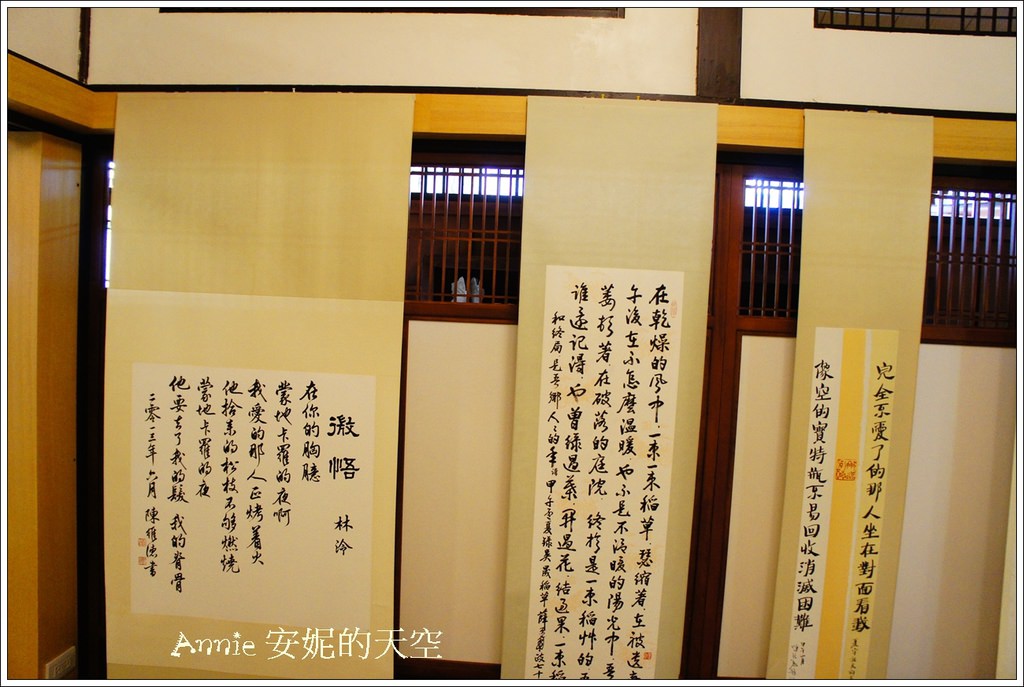 完全不愛了的那人坐在對面看我
像空的寶特瓶不易回收消滅困難
在乾燥的風中 一束一束稻草 瑟縮著 在被遺
午後在不怎麼溫暖 也不是不溫暖的陽光中 吾
萎頓著 在破落的庭院 終於是一束稻艸的
誰還記得 也曾綠過葉 開過花 結過果 一束稻
和終局 是吾鄉人人的年譜 甲午 夏錄吳晟稻草
微悟 林泠
在你的胸臆
蒙地卡羅的夜啊
我愛的那人正烤着火
他拾來的松枝不够燃燒
蒙地卡羅的夜
他要去了我的髮 我的脊骨
二零一三年六月 陳維德書
Annie 安妮的天空